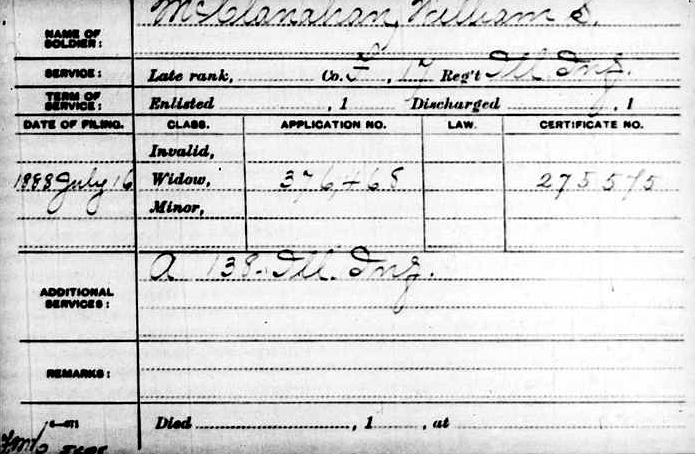 NAME OF SOLDIER: McClanahan, William S.
SERVICE: Late rank, Co. F, 17 Reg't Ill. Inf.
TERM OF SERVICE: Enlisted , 1 Discharged , 1
DATE OF FILING. CLASS. APPLICATION NO. LAW. CERTIFICATE NO.
Invalid,
1888 July 16 Widow, 376,468 275575
Minor,
ADDITIONAL SERVICES: A 138 Ill. Inf.
REMARKS:
Died , 1 , at